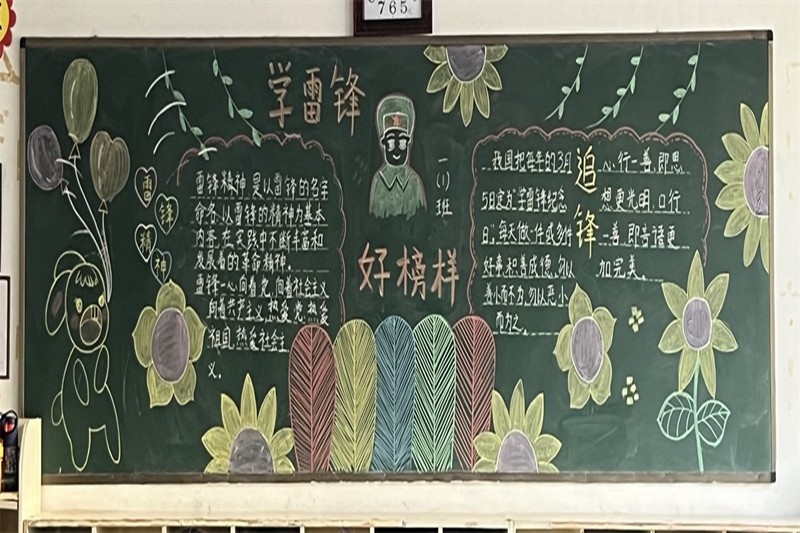 765
学雷锋
好榜样
一(1)班
雷
锋
精
神
雷锋精神是以雷锋的名字
命名、以雷锋的精神为基本
内容、在实践中不断丰富和
发展着的革命精神。
雷锋一心向着党,向着社会主义
向着共产主义,热爱党,热爱
祖国,热爱社会主
义。
追
锋
我国把每年的3月
5日定为"学雷锋纪念
日",每天做一件或多件
好事,积善成德,勿以
善小而不为,勿以恶小
而为之。
心行一善,即思
想更光明,口行
一善,即言语更
加完美。